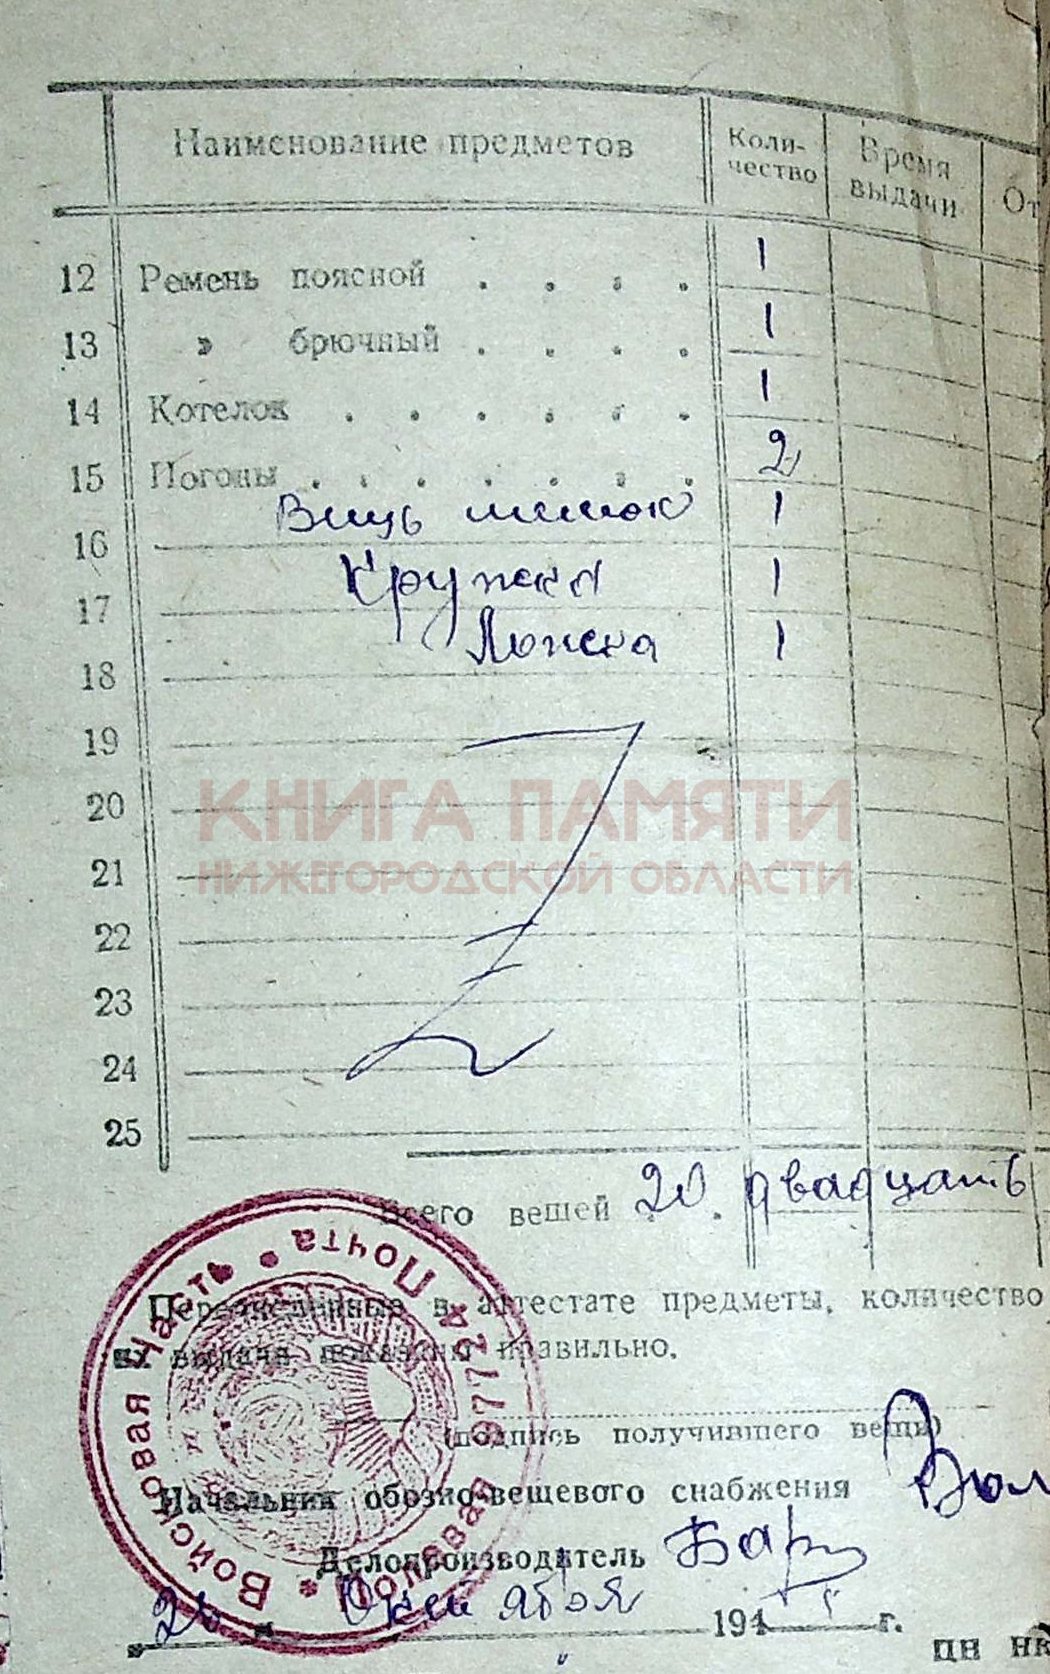 Наименование предметов Коли-чество Время выдачи От
12 Ремень поясной . . . . 1
13 » брючный . . . . 1
14 Котелок . . . . . . 1
15 Погоны . . . . . . . 2
16 Вещь мешок 1
17 Кружка 1
18 Ложка 1
19
20
КНИГА ПАМЯТИ
21
НИЖЕГОРОДСКОЙ ОБЛАСТИ
22
23
24
25
Всего вещей 20. двадцать
Перечисленные в аттестате предметы, количество
их выдачи показаны правильно.
(подпись получившего вещи)
Начальник обозно-вещевого снабжения
Делопроизводитель Бар
Октября 1945 г.
Войсковая Часть • Полевая Почта